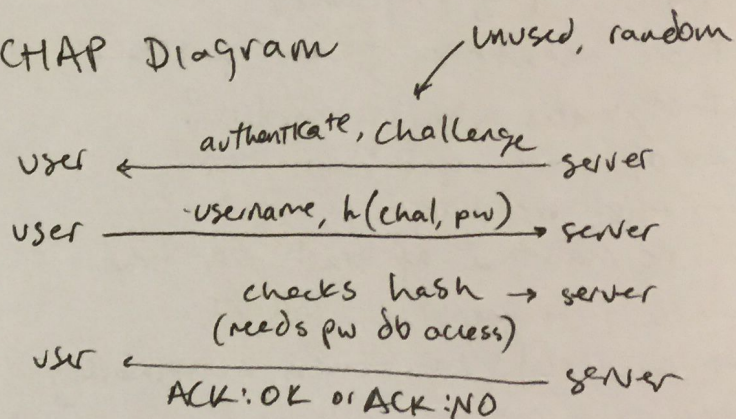 CHAP Diagram
unused, random
authenticate, challenge
user server
username, h(chal, pw)
user server
checks hash → server
(needs pw db access)
user server
ACK:OK or ACK:NO